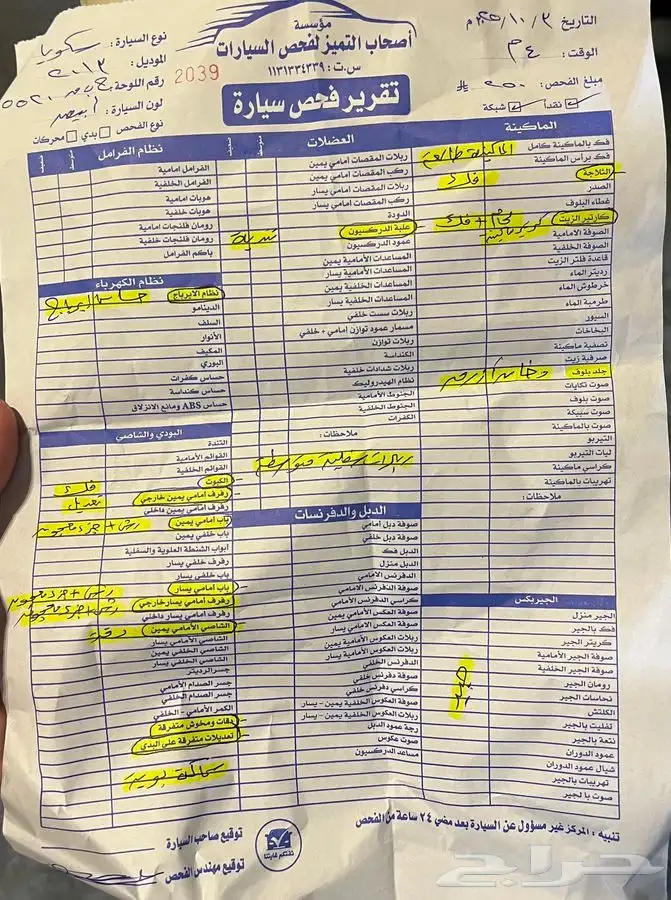 مؤسسة
أصحاب التميز لفحص السيارات
س.ت : ١١٣١٣٣٤٣٣٩
2039
تقرير فحص سيارة
التاريخ ٢٠٢٥/١٠/٣م
الوقت : ٤م
مبلغ الفحص : ٢٥٠
نقداً شبكة
نوع السيارة : سكويا
الموديل : ٢٠١٣
رقم اللوحة :
لون السيارة : أبيض
نوع الفحص بدي محركات
الماكينة
فك بالماكينة كامل
فك برأس الماكينة
الثلاجة فك
الصدر
غطاء البلوف
كارتير الزيت + فك
الصوفة الامامية
الصوفة الخلفية
قاعدة فلتر الزيت
رديتر الماء
خرطوش الماء
طرمبة الماء
السيور
البخاخات
تصفية ماكينة
صرفية زيت
جلد بلوف
صوت تكايات
صوت بلوف
صوت سبيكة
صوت بالماكينة
التيربو
ليات التيربو
كراسي ماكينة
تهريبات بالماكينة
ملاحظات :
الجيربكس
الجير منزل
فك بالجير
كريتر الجير
صوفة الجير الأمامية
صوفة الجير الخلفية
رومان الجير
نحاسات الجير
الكلتش
تفليت بالجير
نتعة بالجير
عمود الدوران
شيال عمود الدوران
تهريبات بالجير
صوت با لجير
جيد
العضلات
متوسط
ضعيف
ربلات المقصات امامي يمين
ركب المقصات امامي يمين
ربلات المقصات امامي يسار
ركب المقصات امامي يسار
الدودة
علبة الدركسيون
عمود الدركسيون
المساعدات الأمامية يمين
المساعدات الأمامية يسار
المساعدات الخلفية يمين
المساعدات الخلفية يسار
ربلات سست خلفي
مسمار عمود توازن امامي + خلفي
ربلات توازن
الكنداسة
ربلات شدادات خلفية
نظام الهيدروليك
الجنوط الأمامية
الجنوط الخلفية
الكفرات
ملاحظات :
الدبل والدفرنسات
صوفة دبل امامي
صوفة دبل خلفي
الدبل فك
الدبل منزل
الدفرنس الامامي
صوفة الدفرنس الامامي
كراسي الدفرنس الأمامي
صوفة العكس الأمامي يمين
صوفة العكس الامامي يسار
ربلات العكوس الأمامية يمين
ربلات العكوس الأمامية يسار
الدفرنس الخلفي
صوفة دفرنس خلفي
كراسي دفرنس خلفي
صوفة العكوس الخلفية يمين - يسار
ربلات العكوس الخلفية يمين - يسار
رجة عمود الدبل
صوت عكوس
مساعد الدركسيون
نظام الفرامل
متوسط
ضعيف
الفرامل امامية
الفرامل الخلفية
هوبات امامية
هوبات خلفية
رومان فلنجات امامية
رومان فلنجات خلفية
باكم الفرامل
نظام الكهرباء
نظام الايرباج حساس ايرباج
الدينامو
السلف
الأنوار
المكيف
البوري
حساس كفرات
حساس كنداسة
حساس ABS ومانع الانزلاق
البودي والشاصي
التندة
القوائم الأمامية
القوائم الخلفية
الكبوت فك
رفرف امامي يمين خارجي تعديل
رفرف امامي يمين داخلي
باب امامي يمين رش + جزء معجون
باب خلفي يمين
أبواب الشنطة العلوية والسفلية
رفرف خلفي يسار
باب خلفي يسار
باب امامي يسار رش + جزء معجون
رفرف امامي يسار خارجي رش + جزء معجون
رفرف امامي يسار داخلي
الشاصي الأمامي يمين دقة
الشاصي الأمامي يسار
الشاصي الخلفي يمين
الشاصي الخلفي يسار
جسر الرديتر
جسر الصدام الأمامي
جسر الصدام الخلفي
الكمر الأمامي - الخلفي
دقات وخدوش متفرقة
تعديلات متفرقة على البدي
تنبيه : المركز غير مسؤول عن السيارة بعد مضي ٢٤ ساعة من الفحص
توقيع صاحب السيارة
توقيع مهندس الفحص
ثقتكم غايتنا
حراج